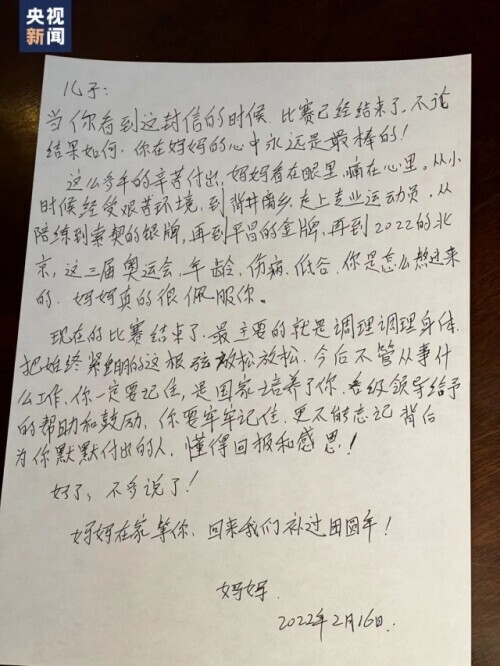 央视
新闻
儿子:
当你看到这封信的时候,比赛已经结束了,不论
结果如何,你在妈妈的心中永远是最棒的!
这么多年的辛苦付出,妈妈看在眼里,痛在心里。从小
时候经受艰苦环境,到背井离乡,走上专业运动员,从
陪练到索契的银牌,再到平昌的金牌,再到2022的北
京,这三届奥运会,年龄、伤病、低谷,你是怎么熬过来
的,妈妈真的很佩服你。
现在的比赛结束了,最主要的就是调理调理身体,
把始终紧绷的这根弦放松放松,今后不管从事什
么工作,你一定要记住,是国家培养了你,各级领导给予
的帮助和鼓励,你要牢牢记住,更不能忘记背后
为你默默付出的人,懂得回报和感恩!
好了,不多说了!
妈妈在家等你,回来我们补过团圆年!
妈妈
2022年2月16日.